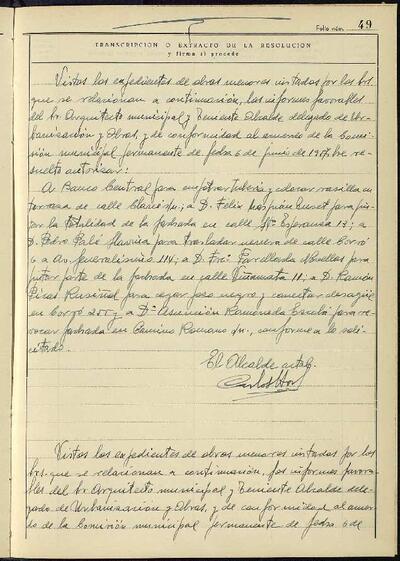 Folio núm. 49
TRANSCRIPCION O EXTRACTO DE LA RESOLUCION
y firma si procede
Vistos los expedientes de obras menores instados por los Srs.
que se relacionan a continuación, los informes favorables
del Sr. Arquitecto municipal y Teniente Alcalde delegado de Ur-
banización y Obras, y de conformidad al acuerdo de la Comi-
sión municipal permanente de fecha 6 de junio de 1957, he re-
suelto autorizar:
A Banco Central para
terraza de calle a D. Félix para pin-
tar la totalidad de la fachada en calle Esperanza 17; a
D. Pedro para trasladar de calle
6 a Av. Generalísimo 114; a D. para
pintar parte de la fachada en calle 11; a D. Ramón
Rusiñol para cegar pozo negro y conectar desagüe
en y a Dª Asunción para re-
vocar fachada en Camino Romano s/n, conforme a lo soli-
citado.
El Alcalde actal.
Vistos los expedientes de obras menores instados por los
Srs. que se relacionan a continuación, los informes favora-
bles del Sr. Arquitecto municipal y Teniente Alcalde dele-
gado de Urbanización y Obras, y de conformidad al acuer-
do de la Comisión municipal permanente de fecha 6 de